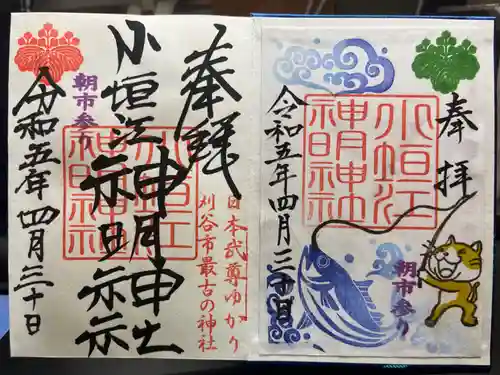 奉拝
小垣江
神明神社
朝市参り
令和五年四月三十日
奉拝
日本武尊ゆかり
刈谷市最古の神社
小垣江神明神社
小垣江
神明神社
朝市参り
令和五年四月三十日